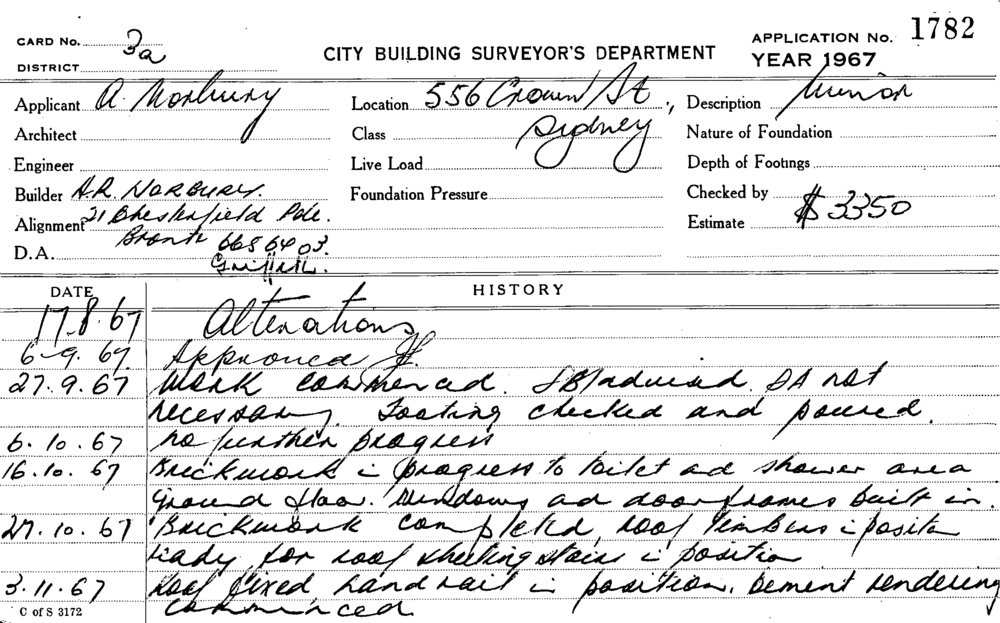 CARD No. 3a
DISTRICT
CITY BUILDING SURVEYOR'S DEPARTMENT
APPLICATION No. 1782
YEAR 1967
Applicant A. Norbury
Location 556 Crown St,
Description Minor
Architect
Class Sydney
Nature of Foundation
Engineer
Live Load
Depth of Footings
Builder A.R. NORBURY.
Foundation Pressure
Checked by
Alignment 21 Chesterfield Pde.
Estimate $3350
Bronte 6656403.
D.A. Griffith.
DATE
HISTORY
17.8.67 Alterations
6-9.67 Approved
27.9.67 Work commenced. advised DA not
necessary. Footing checked and poured.
6.10.67 no further progress
16.10.67 Brickwork i progress to toilet ad shower area
Ground floor. Windows ad door frames built in.
27.10.67 Brickwork completed, roof timbers i positn
ready for roof sheeting stairs i position
3.11.67 Roof fixed, hand rail in position. Cement rendering
C of S 3172 commenced